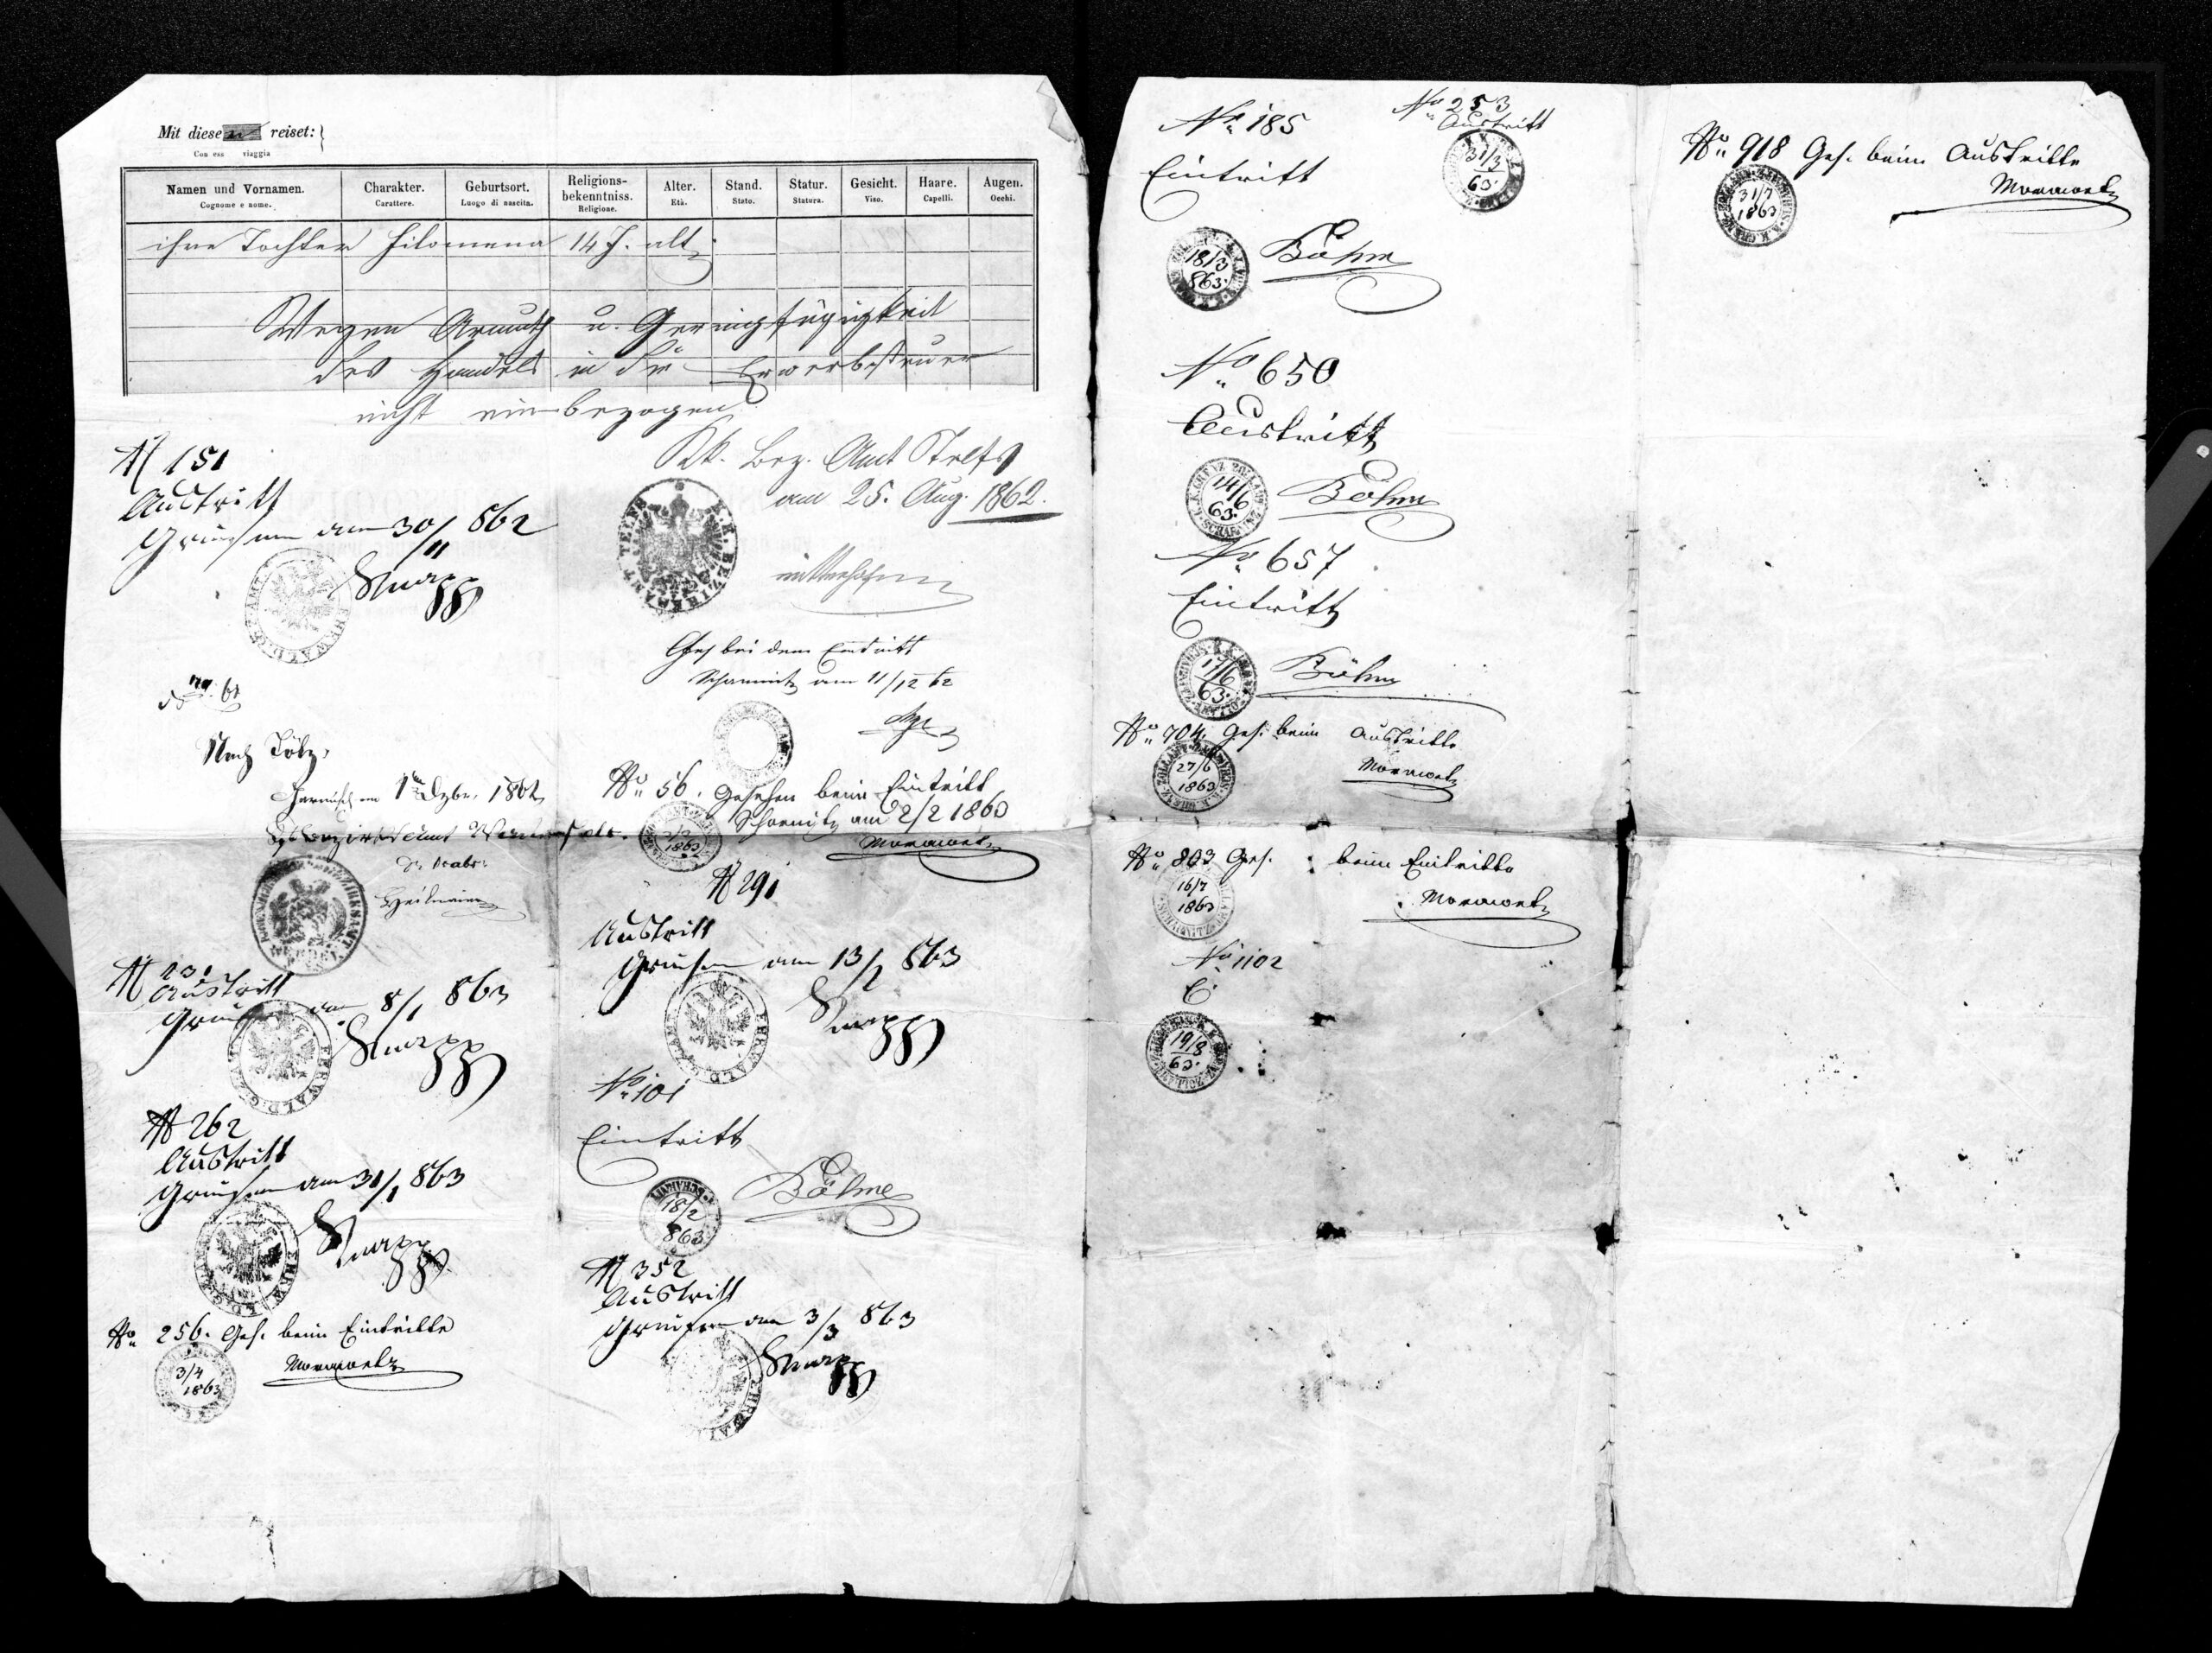 Mit diesen reiset:
Con ess viaggia
Namen und Vornamen. Charakter. Geburtsort. Religions-bekenntniss. Alter. Stand. Statur. Gesicht. Haare. Augen.
Cognome e nome. Carattere. Luogo di nascita. Religione. Età. Stato. Statura. Viso. Capelli. Occhi.
ihre Tochter Filomena 14 J. alt
Wegen Armuth u. Geringfügigkeit
des Handels in die Erwerbsteuer
nicht einbezogen
KK. Bez. Amt Telfs
am 25. Aug. 1862.
K. K. BEZIRKSAMT TELFS
N 151
Austritt
Griesen am 30/11 862
Knapp
EHRWALD
Nach Tölz,
Garmisch am 1ten Dzbr. 1862
Kgl. Bezirksamt Werdenfels.
BEZIRKSAMT
N 231
Austritt
Griesen am 8/1 863
Knapp
EHRWALD
N 262
Austritt
Griesen am 31/1 863
Knapp
EHRWALD
No 256. Ges. beim Eintritte
3/4
1863
Morawetz
Ges bei dem Eintritt
Scharnitz am 11/12 62
No 56. Gesehen beim Eintritt
Scharnitz am 2/2 1863
1863
Morawetz
N 291
Austritt
Griesen am 13/2 863
Knapp
EHRWALD
No 101
Eintritt
SCHARNITZ
18/2
863
Böhm
N 352
Austritt
Griesen am 3/3 863
Knapp
EHRWALD
No 185
Eintritt
18/3
863.
Böhm
No 253
Austritt
31/3
63.
No 650
Austritt
K.K. GRENZ ZOLLAMT SCHARNITZ
14/6
63.
Böhm
No 657
Eintritt
17/6
63.
Böhm
No 704. Ges. beim Austritte
27/6
1863
Morawetz
No 803 Ges. beim Eintritte
16/7
1863
Morawetz
No 1102
E.
19/8
63.
No 918 Ges. beim Austritte
31/7
1863
Morawetz